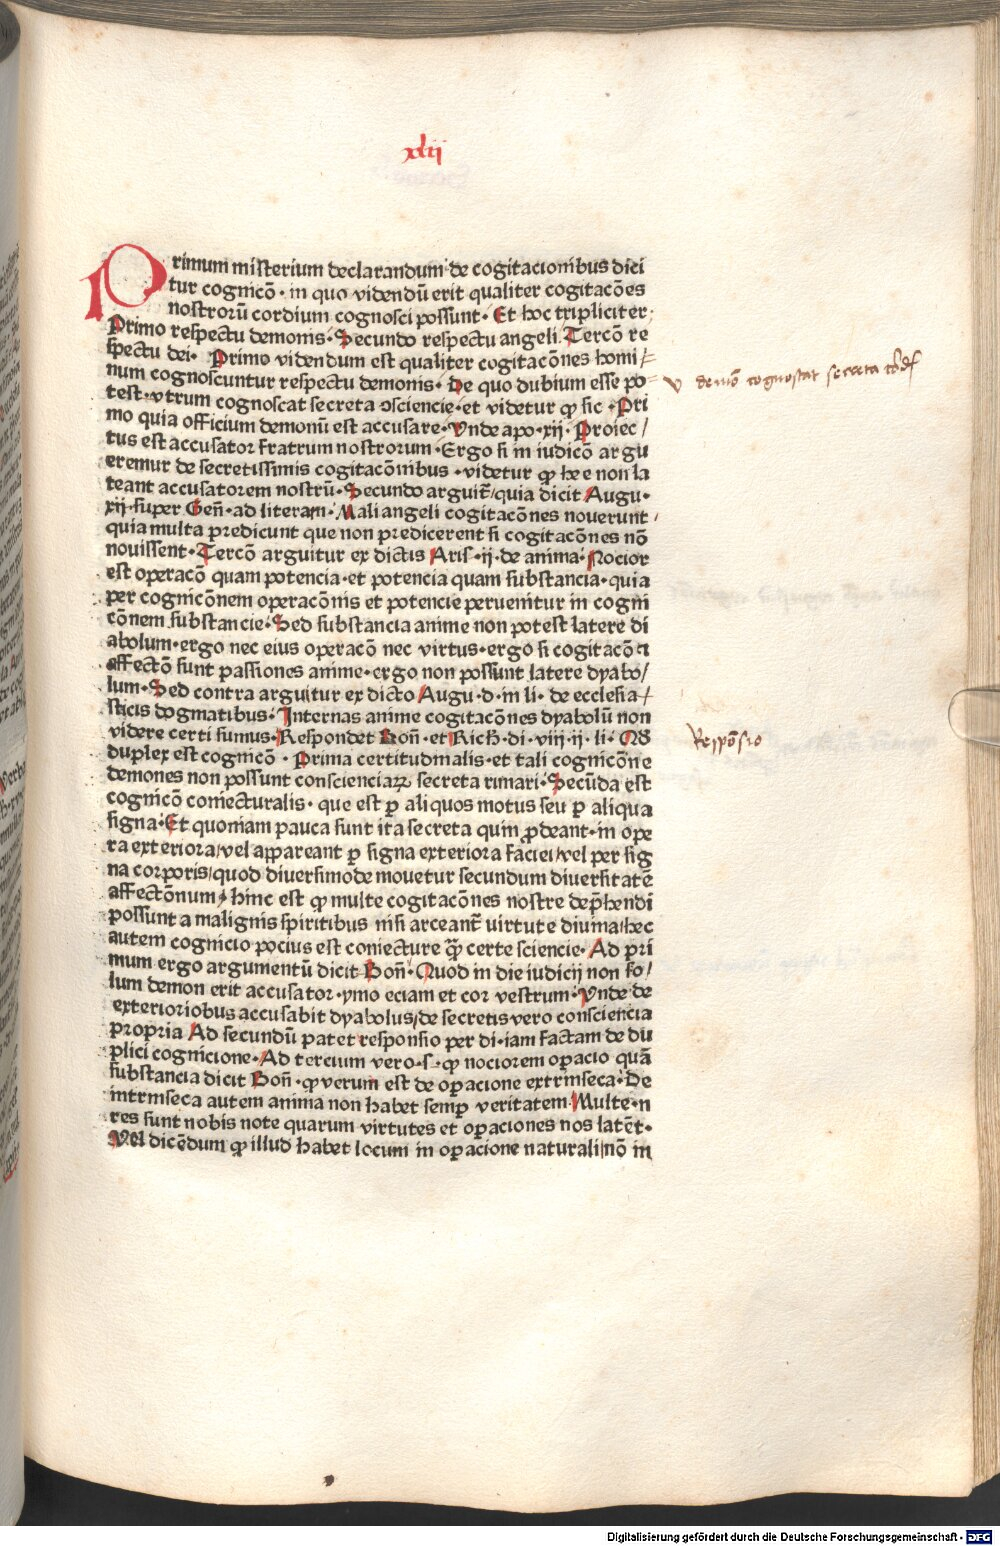 xlii
Primum misterium declarandum de cogitacionibus dici
tur cognicō · in quo videndū erit qualiter cogitacōes
nostrorū cordium cognosci possunt · Et hoc tripliciter
Primo respectu demonis · Secundo respectu angeli · Tercō re
spectu dei · Primo videndum est qualiter cogitacōnes homi⸗
num cognoscuntur respectu demonis · De quo dubium esse po⸗
test · vtrum cognoscat secreta ↄsciencie · et videtur ꝙ sic · Pri
mo quia officium demonū est accusare · Vnde apo · xij · Proiec/
tus est accusator fratrum nostrorum · Ergo si in iudicō argu
eremur de secretissimis cogitacōnibus · videtur ꝙ hee non la
teant accusatorem nostrū · Secundo arguit̄/ quia dicit Augu ·
xij · super Geñ · ad literam · Mali angeli cogitacōnes nouerunt ·
quia multa predicunt que non predicerent si cogitacōnes nō
nouissent · Tercō arguitur ex dictis Aris · ij · de anima · Nocior
est operacō quam potencia · et potencia quam substancia · quia
per cognicōnem operacōnis et potencie peruenitur in cogni
cōnem substancie · Sed substancia anime non potest latere di
abolum · ergo nec eius operacō nec virtus · ergo si cogitacō ⁊
affectō sunt passiones anime · ergo non possunt latere dyabo/
lum · Sed contra arguitur ex dicto Augu · d · in li · de ecclesia/
sticis dogmatibus · Internas anime cogitacōnes dyabolū non
videre certi sumus · Respondet Boñ · et Rich̄ · di · viij · ij · li · Qđ
duplex est cognicō · Prima certitudinalis · et tali cognicōne
demones non possunt conscienciaꝝ secreta rimari · Secūda est
cognicō coniecturalis · que est ꝑ aliquos motus seu ꝑ aliqua
signa · Et quoniam pauca sunt ita secreta quin ꝓdeant · in ope
ra exteriora/ vel appareant ꝑ signa exteriora faciei/ vel per sig
na corporis/ quod diuersimode mouetur secundum diuersitatē
affectōnum/ hinc est ꝙ multe cogitacōnes nostre dep̄hendi
possunt a malignis spiritibus nisi arceant̄ virtute diuina/ hec
autem cognicio pocius est coniecture q̄ꝫ certe sciencie · Ad pri
mum ergo argumentū dicit Boñ · Quod in die iudicij non so/
lum demon erit accusator · ymo eciam et cor vestrum · Vnde de
exterioriobus accusabit dyabolus/ de secretis vero consciencia
propria Ad secundū patet responsio per di · iam factam de du
plici cognicione · Ad tercium vero · s · ꝙ nociorem oꝑacio quā
substancia dicit Boñ · ꝙ verum est de oꝑacione extrinseca · De
intrinseca autem anima non habet semꝑ veritatem · Multe · n
res sunt nobis note quarum virtutes et oꝑaciones nos latēt ·
Vel dicēdum ꝙ illud habet locum in oꝑacione naturali/ nō in
demō cognoscat secreta
Respōsio
Digitalisierung gefördert durch die Deutsche Forschungsgemeinschaft - DFG